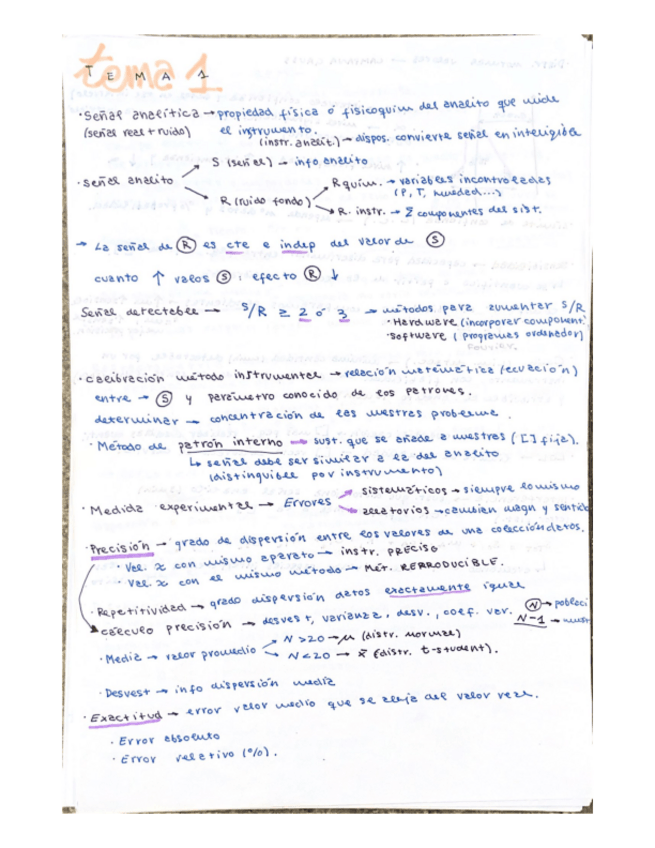 TEMA 1
tema 1
· Señal analítica → propiedad física o fisicoquím del analito que mide
(señal real + ruido) el instrumento.
(instr. analít.) → dispos. convierte señal en inteligible
S (señal) → info analito
· Señal analito
R quím. → variables incontroladas
(P, T, humedad...)
R (ruido fondo)
R. instr. → Σ componentes del sist.
→ La señal de R es cte e indep del valor de S
cuanto ↑ valos S : efecto R ↓
Señal detectable → S/R ≥ 2 ó 3 → métodos para aumentar S/R
· Hardware (incorporar component.
· Software (programas ordenador)
Fourier.
· Calibración método instrumental → relación matemática (ecuación)
entre → S y parámetro conocido de los patrones.
determinar → concentración de las muestras problema.
· Método de patrón interno → sust. que se añade a muestras ([ ] fija).
↳ señal debe ser similar a la del analito
(distinguible por instrumento)
· Medida experimental → Errores
sistemáticos → siempre lo mismo
aleatorios → cambian magn y sentid
· Precisión → grado de dispersión entre los valores de una colección datos.
· Val. x con mismo aparato → instr. PRECISO
· Val. x con el mismo método → Mét. REPRODUCIBLE.
· Repetitividad → grado dispersión datos exactamente igual
Cálculo precisión → desvest, varianza, desv., coef. var. N → poblaci
N-1 → muest
· Media → valor promedio
N > 20 → μ (distr. normal)
N < 20 → x̄ (distr. t-student).
· Desvest → info dispersión media
· Exactitud → error valor medio que se aleja del valor real.
· Error absoluto
· Error relativo (%).